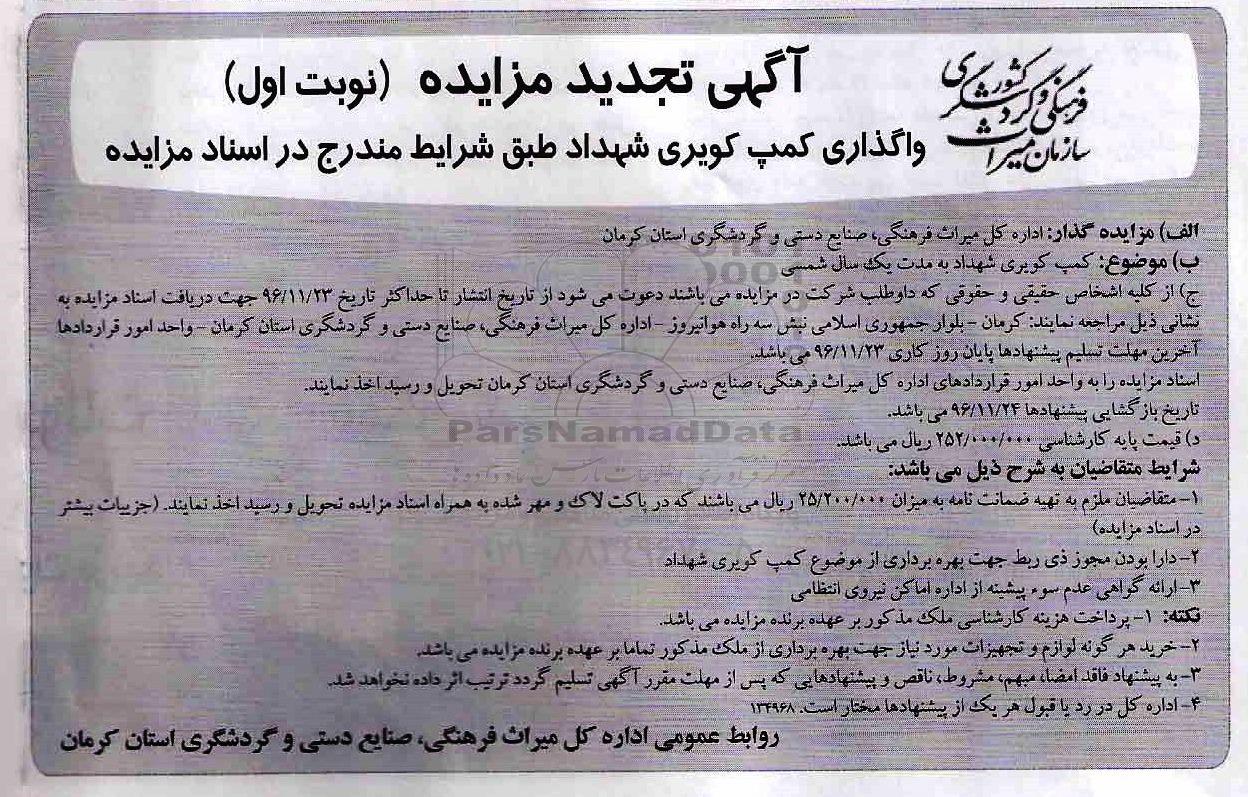 سازمان میراث فرهنگی و گردشگری کشور
آگهی تجدید مزایده (نوبت اول)
واگذاری کمپ کویری شهداد طبق شرایط مندرج در اسناد مزایده
الف) مزایده گذار: اداره کل میراث فرهنگی، صنایع دستی و گردشگری استان کرمان
ب) موضوع: کمپ کویری شهداد به مدت یک سال شمسی
ج) از کلیه اشخاص حقیقی و حقوقی که داوطلب شرکت در مزایده می باشند دعوت می شود از تاریخ انتشار تا حداکثر تاریخ ۹۶/۱۱/۲۳ جهت دریافت اسناد مزایده به
نشانی ذیل مراجعه نمایند: کرمان – بلوار جمهوری اسلامی نبش سه راه هوانیروز – اداره کل میراث فرهنگی، صنایع دستی و گردشگری استان کرمان – واحد امور قراردادها
آخرین مهلت تسلیم پیشنهادها پایان روز کاری ۹۶/۱۱/۲۳ می باشد.
اسناد مزایده را به واحد امور قراردادهای اداره کل میراث فرهنگی، صنایع دستی و گردشگری استان کرمان تحویل و رسید اخذ نمایند.
تاریخ بازگشایی پیشنهادها ۹۶/۱۱/۲۴ می باشد.
ParsNamadData
د) قیمت پایه کارشناسی ۲۵۲/۰۰۰/۰۰۰ ریال می باشد.
شرایط متقاضیان به شرح ذیل می باشد:
۱– متقاضیان ملزم به تهیه ضمانت نامه به میزان ۲۵/۲۰۰/۰۰۰ ریال می باشند که در پاکت لاک و مهر شده به همراه اسناد مزایده تحویل و رسید اخذ نمایند. (جزییات بیشتر
در اسناد مزایده)
۲–دارا بودن مجوز ذی ربط جهت بهره برداری از موضوع کمپ کویری شهداد
۳–ارائه گواهی عدم سوء پیشینه از اداره اماکن نیروی انتظامی
نکته: ۱– پرداخت هزینه کارشناسی ملک مذکور بر عهده برنده مزایده می باشد.
۲–خرید هر گونه لوازم و تجهیزات مورد نیاز جهت بهره برداری از ملک مذکور تماما بر عهده برنده مزایده می باشد.
۳–به پیشنهاد فاقد امضاء، مبهم، مشروط، ناقص و پیشنهادهایی که پس از مهلت مقرر آگهی تسلیم گردد ترتیب اثر داده نخواهد شد.
۴–اداره کل در رد یا قبول هر یک از پیشنهادها مختار است. ۱۳۴۹۶۸
روابط عمومی اداره کل میراث فرهنگی، صنایع دستی و گردشگری استان کرمان